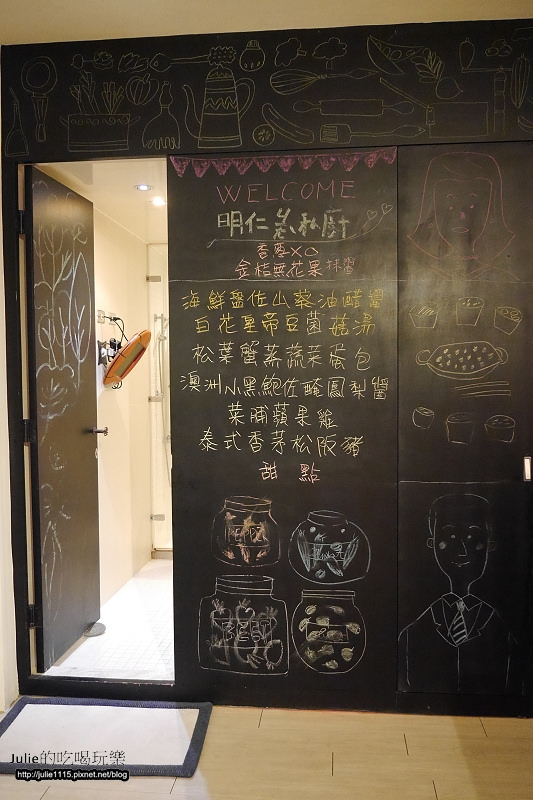 WELCOME
明仁 私廚
香蔥XO
金桔無花果抹醬
海鮮盤佐山葵油醋醬
白花皇帝豆菌菇湯
松葉蟹蒸蔬菜蛋包
澳洲小黑鮑佐醃鳳梨醬
菜脯蘋果雞
泰式香茅松阪豬
甜點
Julie的吃喝玩樂
http://julie1115.pixnet.net/blog